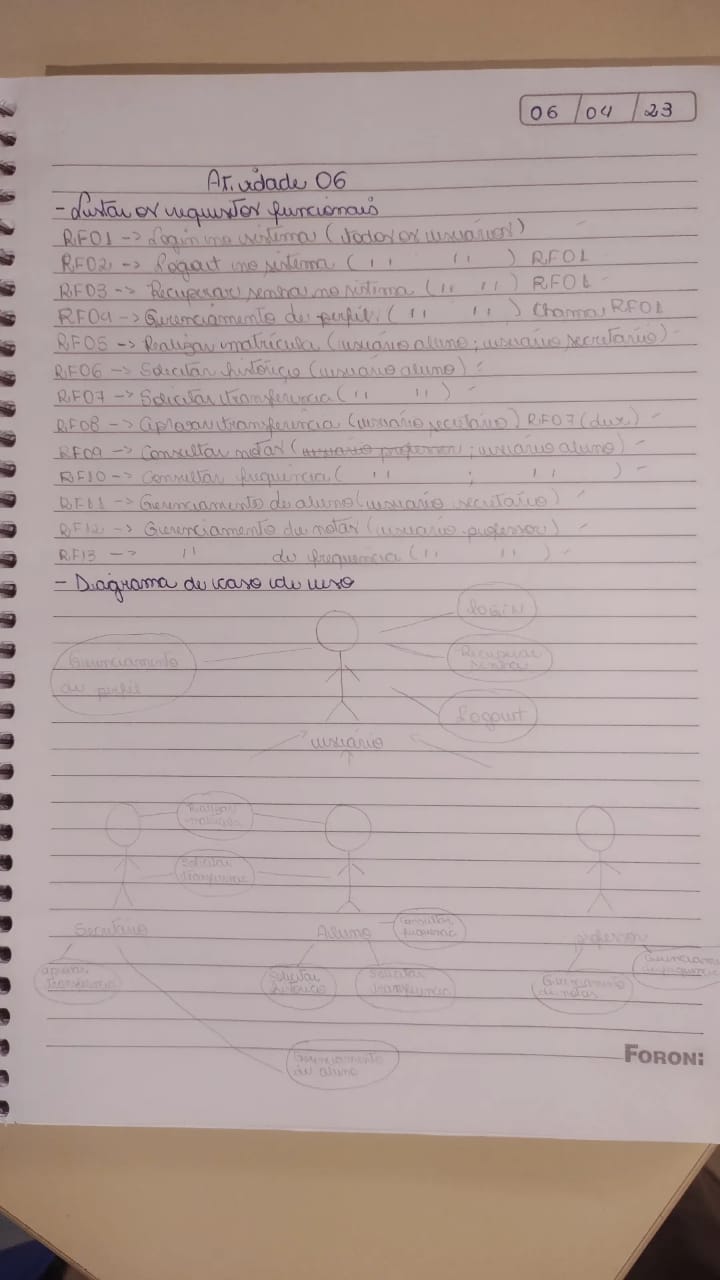 06 / 04 / 23
Atividade 06
- Listar os requisitos funcionais
RF01 -> Login no sistema (todos os usuários)
RF02 -> Logout no sistema ( '' '' ) RF01
RF03 -> Recuperar senha no sistema ( '' '' ) RF01
RF04 -> Gerenciamento de perfil ( '' '' ) chama RF01
RF05 -> Realizar matrícula (usuário aluno; usuário secretário) -
RF06 -> Solicitar histórico (usuário aluno) -
RF07 -> Solicitar transferencia ( '' '' ) -
RF08 -> Aprovar transferência (usuário secretário) RF07 -
RF09 -> Consultar notas (usuário professor; usuário aluno) -
RF10 -> Consultar frequência ( '' ; '' ) -
RF11 -> Gerenciamento de aluno (usuário secretário) -
RF12 -> Gerenciamento de notas (usuário professor) -
RF13 -> '' de frequencia ( '' '' ) -
- Diagrama de caso de uso
login
Gerenciamento
de perfil
Recuperar
senha
logout
usuário
Realizar
matrícula
Solicitar
transferenc
Secretário
Aluno
Consultar
frequenc
professor
Gerenciame
de frequencia
aprovar
transferencia
Solicitar
histórico
Solicitar
transferencia
Gerenciamento
de notas
Gerenciamento
de aluno
FORONI